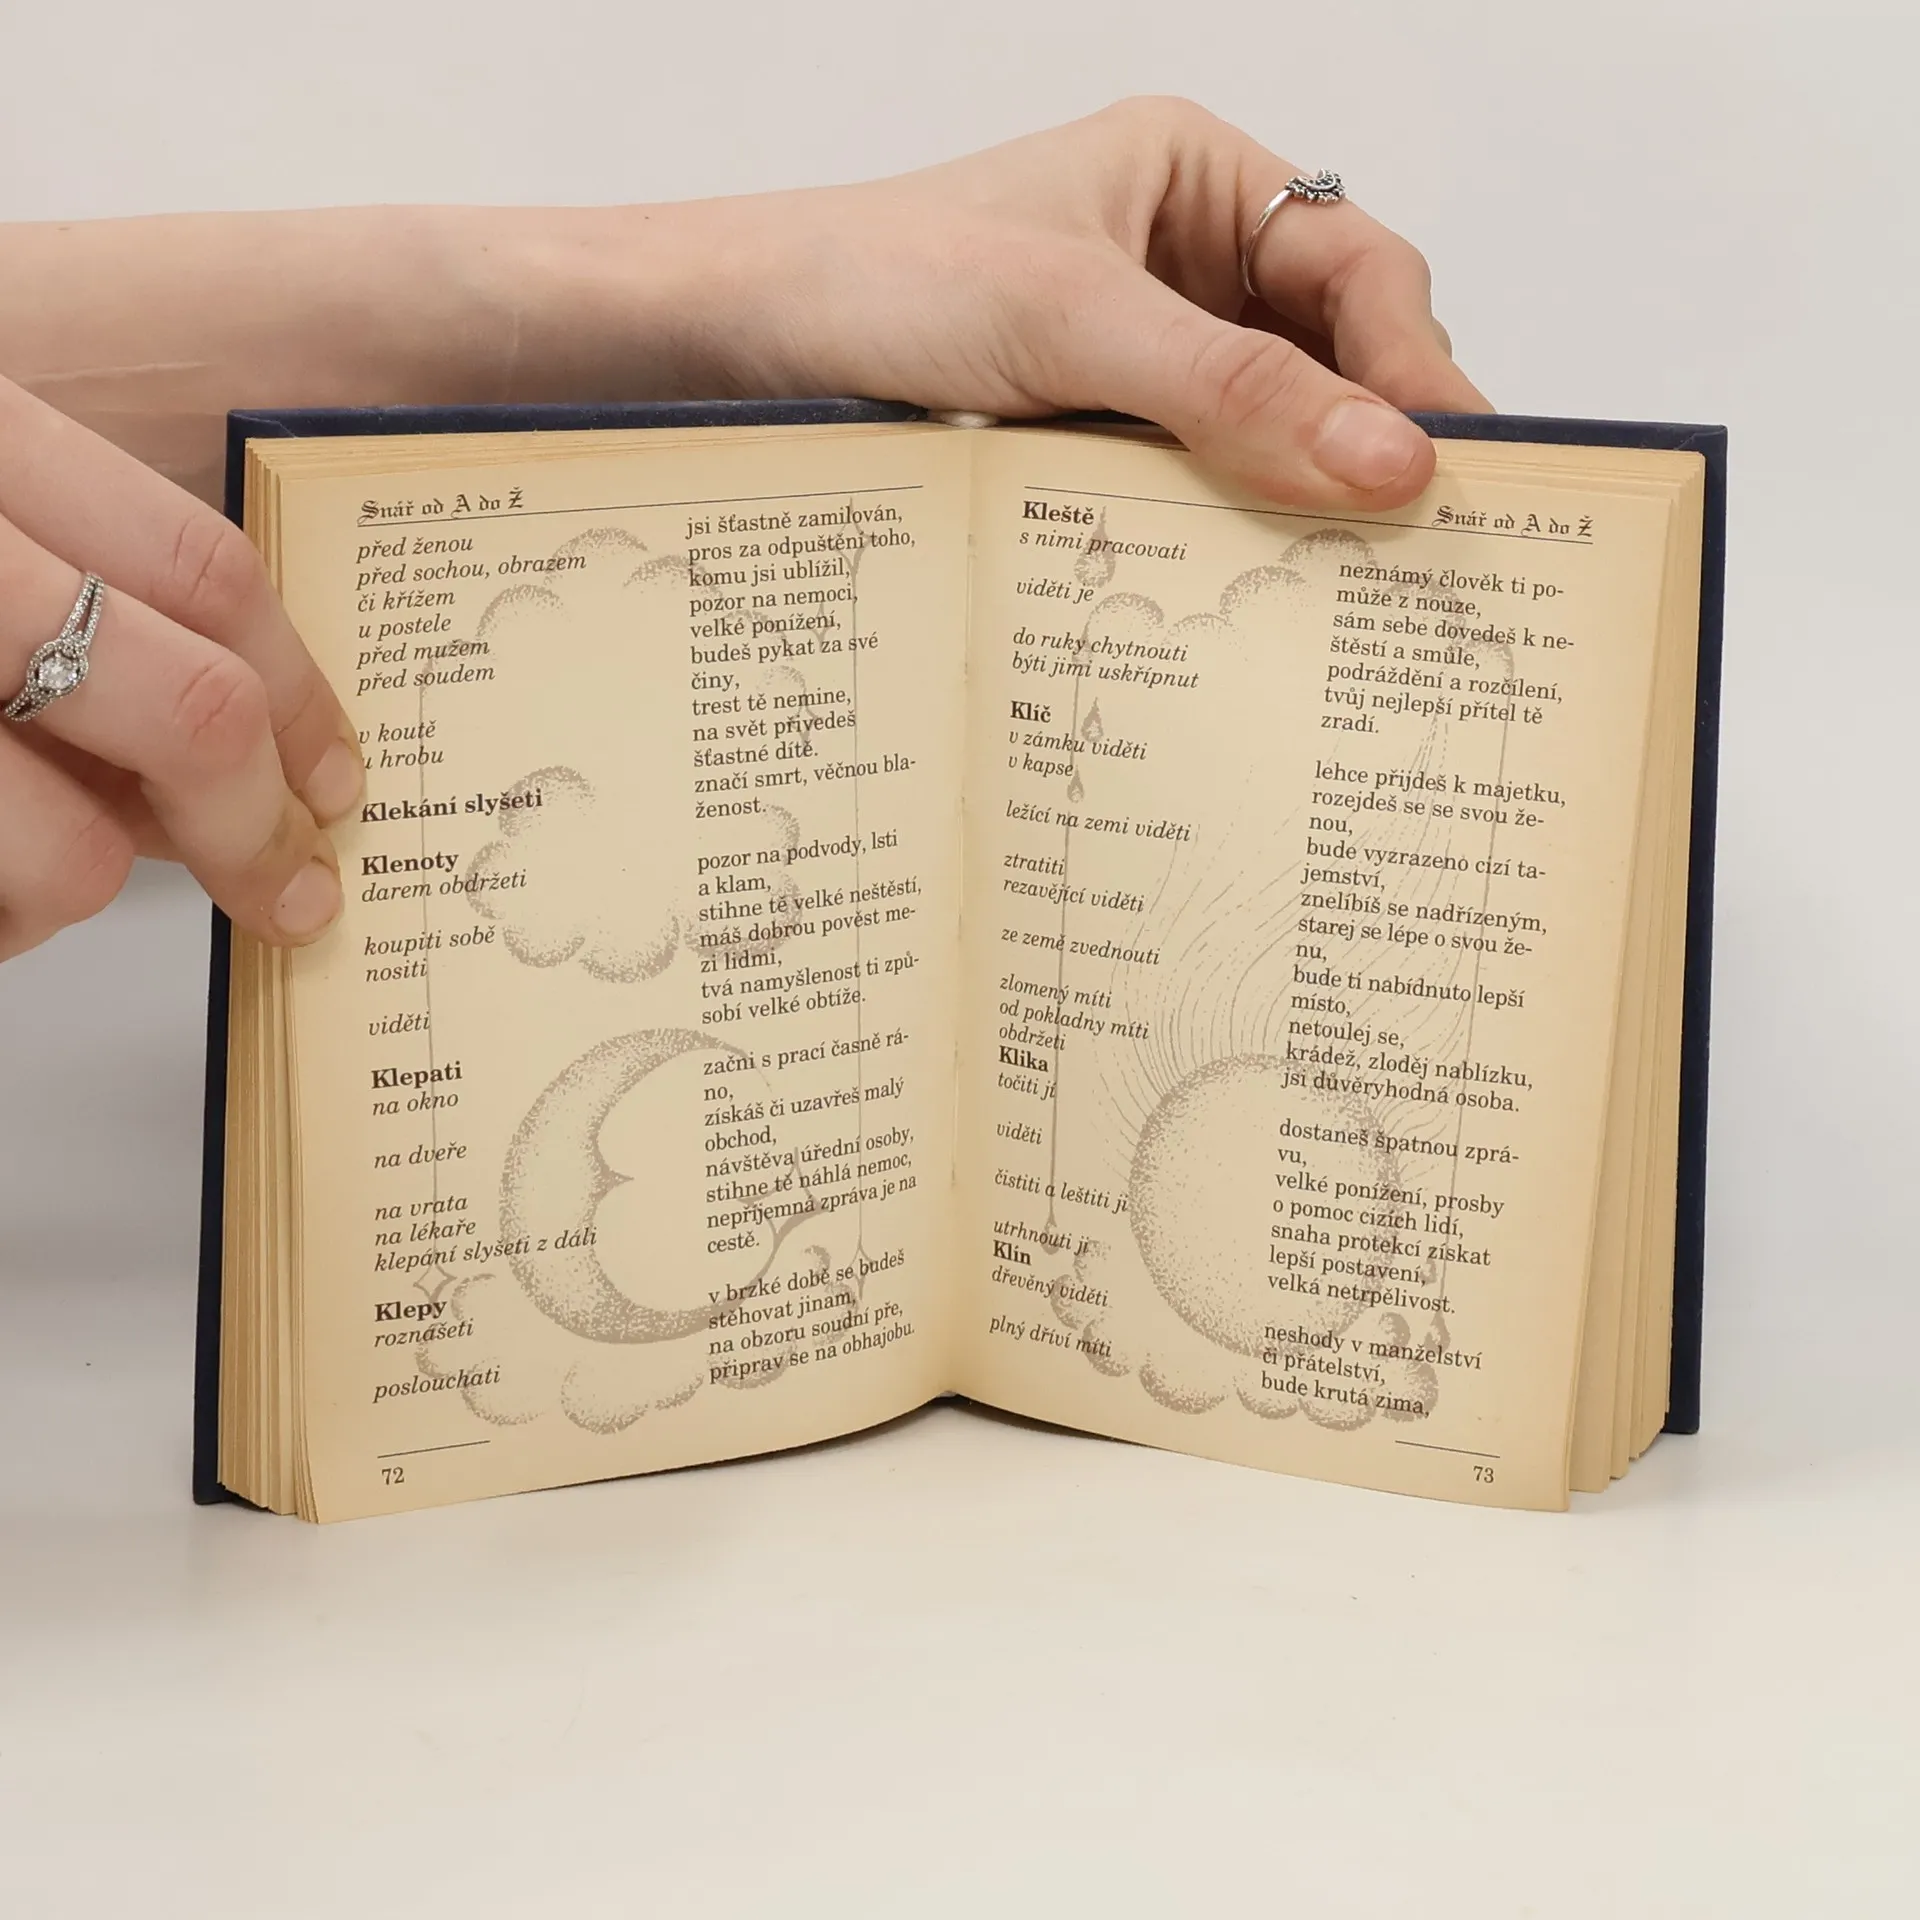 Snář od A do Ž
před ženou
před sochou, obrazem
či křížem
u postele
před mužem
před soudem
v koutě
u hrobu
Klekání slyšeti
Klenoty
darem obdržeti
koupiti sobě
nositi
viděti
Klepati
na okno
na dveře
na vrata
na lékaře
klepání slyšeti z dáli
Klepy
roznášeti
poslouchati
jsi šťastně zamilován,
pros za odpuštění toho,
komu jsi ublížil,
pozor na nemoci,
velké ponížení,
budeš pykat za své
činy,
trest tě nemine,
na svět přivedeš
šťastné dítě.
značí smrt, věčnou bla-
ženost.
pozor na podvody, lsti
a klam,
stihne tě velké neštěstí,
máš dobrou pověst me-
zi lidmi,
tvá namyšlenost ti způ-
sobí velké obtíže.
začni s prací časně rá-
no,
získáš či uzavřeš malý
obchod,
návštěva úřední osoby,
stihne tě náhlá nemoc,
nepříjemná zpráva je na
cestě.
v brzké době se budeš
stěhovat jinam,
na obzoru soudní pře,
připrav se na obhajobu.
72
Snář od A do Ž
Kleště
s nimi pracovati
viděti je
do ruky chytnouti
býti jimi uskřípnut
Klíč
v zámku viděti
v kapse
ležící na zemi viděti
ztratiti
rezavějící viděti
ze země zvednouti
zlomený míti
od pokladny míti
obdržeti
Klika
točiti jí
viděti
čistiti a leštiti ji
utrhnouti ji
Klín
dřevěný viděti
plný dříví míti
neznámý člověk ti po-
může z nouze,
sám sebe dovedeš k ne-
štěstí a smůle,
podráždění a rozčílení,
tvůj nejlepší přítel tě
zradí.
lehce přijdeš k majetku,
rozejdeš se se svou že-
nou,
bude vyzrazeno cizí ta-
jemství,
znelíbíš se nadřízeným,
starej se lépe o svou že-
nu,
bude ti nabídnuto lepší
místo,
netoulej se,
krádež, zloděj nablízku,
jsi důvěryhodná osoba.
dostaneš špatnou zprá-
vu,
velké ponížení, prosby
o pomoc cizích lidí,
snaha protekcí získat
lepší postavení,
velká netrpělivost.
neshody v manželství
či přátelství,
bude krutá zima,
73